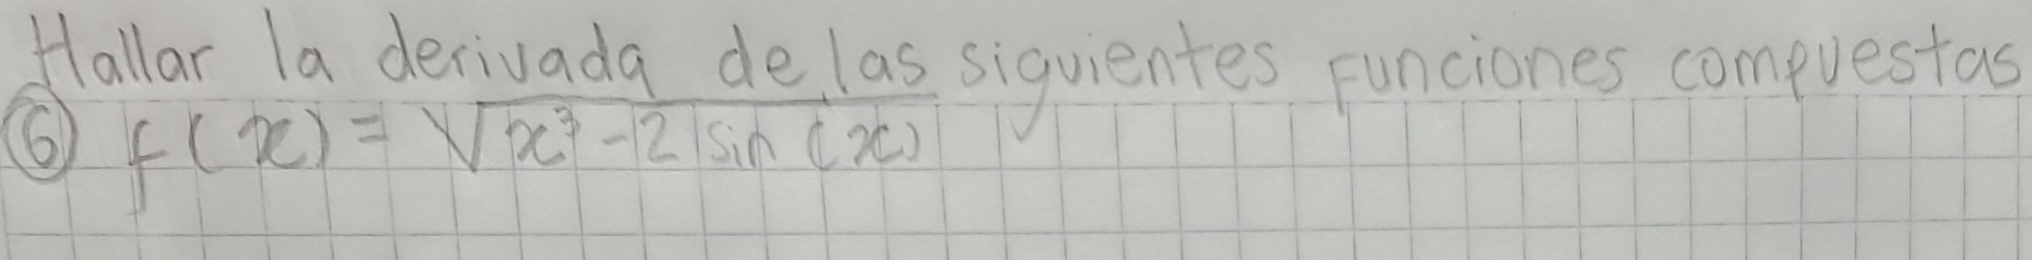 Hallar la derivada de las siguientes funciones compuestas
⑥ f(x) = √x³ - 2 sin (x)